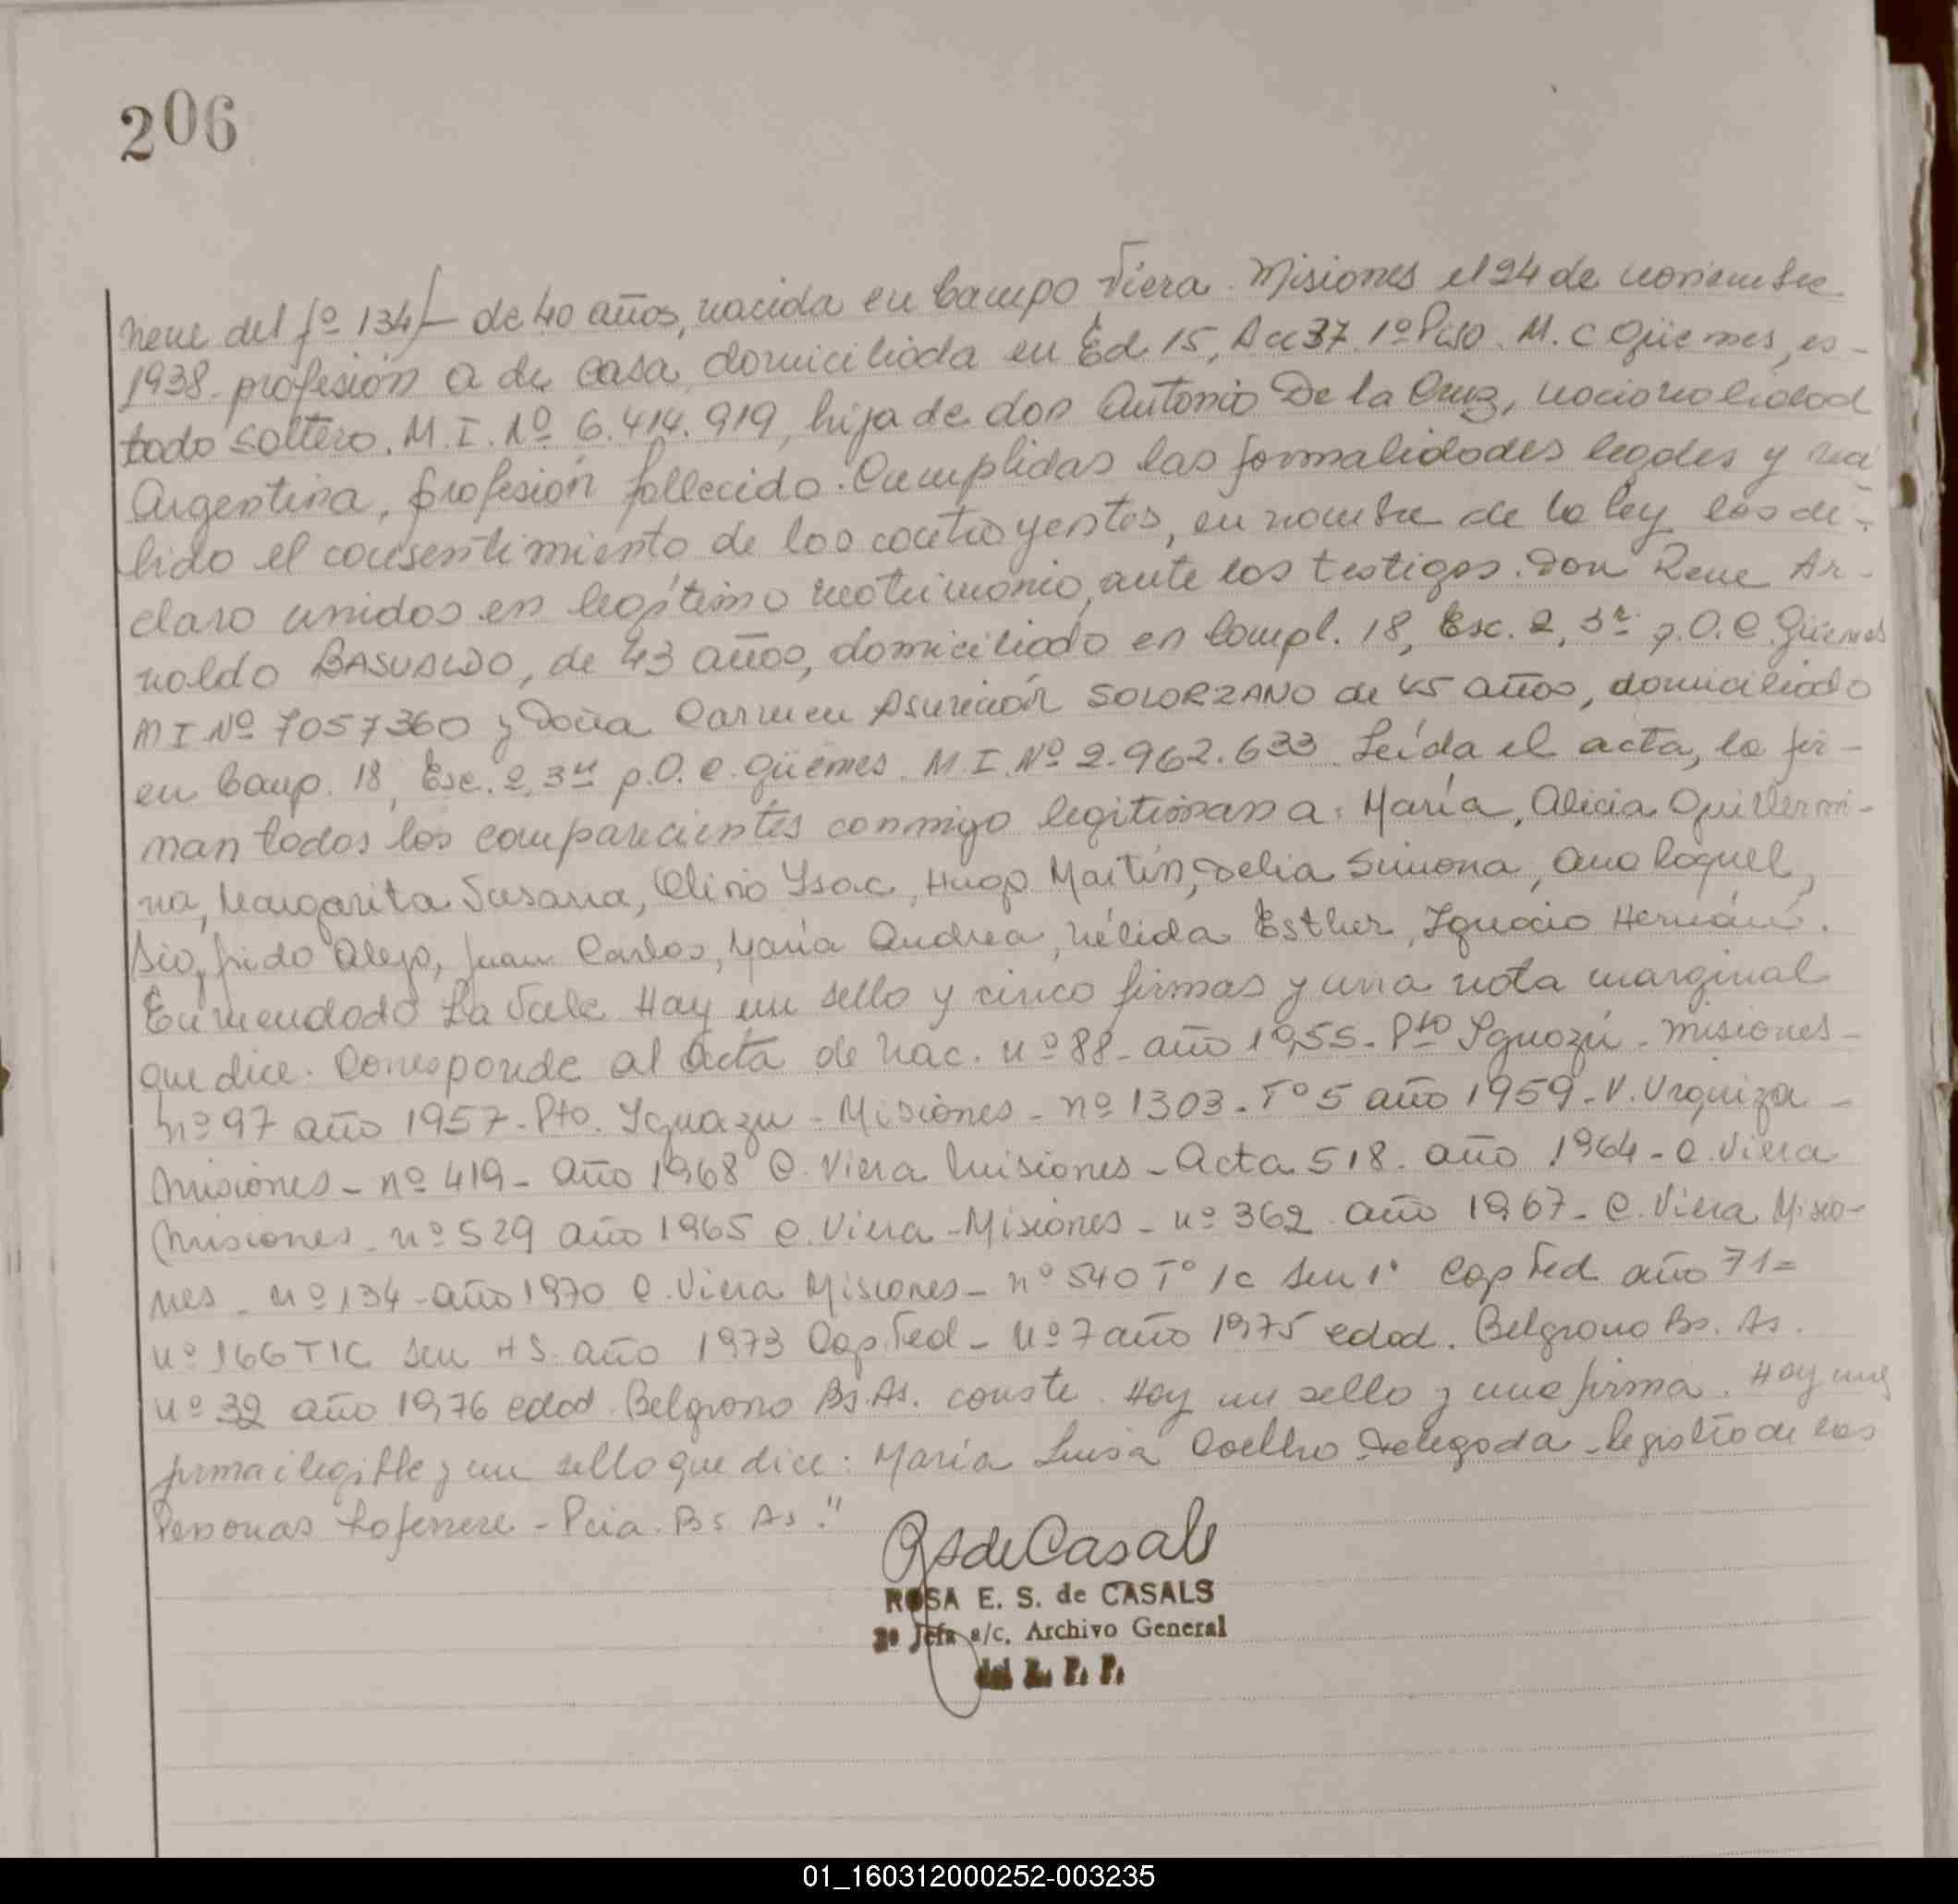 206
viene del fº 134/- de 40 años, nacida en Campo Viera. Misiones el 24 de noviembre
1938- profesión a de casa, domiciliada en Ed. 15, Acc 37. 1º Piso. M. C Güemes, es-
tado soltero. M. I. Nº 6.414.919, hija de don Antonio De la Cruz, nacionalidad
Argentina, profesión fallecido. Cumplidas las formalidades legales y reci
bido el consentimiento de los contrayentes, en nombre de la ley los de-
claro unidos en legítimo matrimonio, ante los testigos. Don Rene Ar-
noldo BASUALDO, de 43 años, domiciliado en Compl. 18, Esc. 2, 3º p. O. C. Güemes
M I Nº 7057360 y Doña Carmen Asunción SOLORZANO de 45 años, domiciliado
en Comp. 18, Esc. 2, 3º p. O. C. Güemes. M. I. Nº 2.962.633. Leída el acta, la fir-
man todos los comparecientes conmigo legitiman a: María, Alicia Guillermi-
na, Margarita Susana, Clirio Ysac, Hugo Martín, Delia Simona, Ana Raquel,
Siofrido Alejo, Juan Carlos, María Andrea, Nélida Esther, Ignacio Hernán.
Enmendado La Vale Hay un sello y cinco firmas y una nota marginal
que dice: Corresponde al acta de nac. nº 88- año 1955- Pto Iguazú- Misiones-
nº 97 año 1957- Pto. Iguazu- Misiones- nº 1303- Tº 5 año 1959- V. Urquiza-
Misiones- nº 419- año 1968 C. Viera Misiones- Acta 518. año 1964- C. Viera
Misiones- nº 529 año 1965 C. Viera- Misiones- nº 362 año 1967- C. Viera Misio-
nes- nº 134- año 1970 C. Viera Misiones- nº 540 Tº 1c Sen 1º Cap Fed año 71=
nº 166 T1C Sen HS año 1973 Cap. Fed- nº 7 año 1975 edad. Belgrano Bs. As.
nº 32 año 1976 edad. Belgrano Bs. As. conste. Hay un sello y una firma. Hay una
firma ilegible y un sello que dice: María Luisa Coelho Delegada- Registro de las
Personas Laferrere- Pcia. Bs As."
RSdeCasals
ROSA E. S. de CASALS
2º Jefa a/c. Archivo General
del R. P. P.
01_160312000252-003235